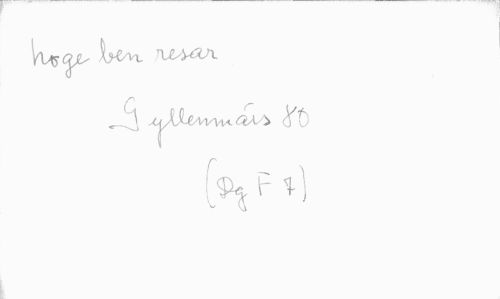 hoge ben resar
Gyllenmärs 80
(Dg F 7)